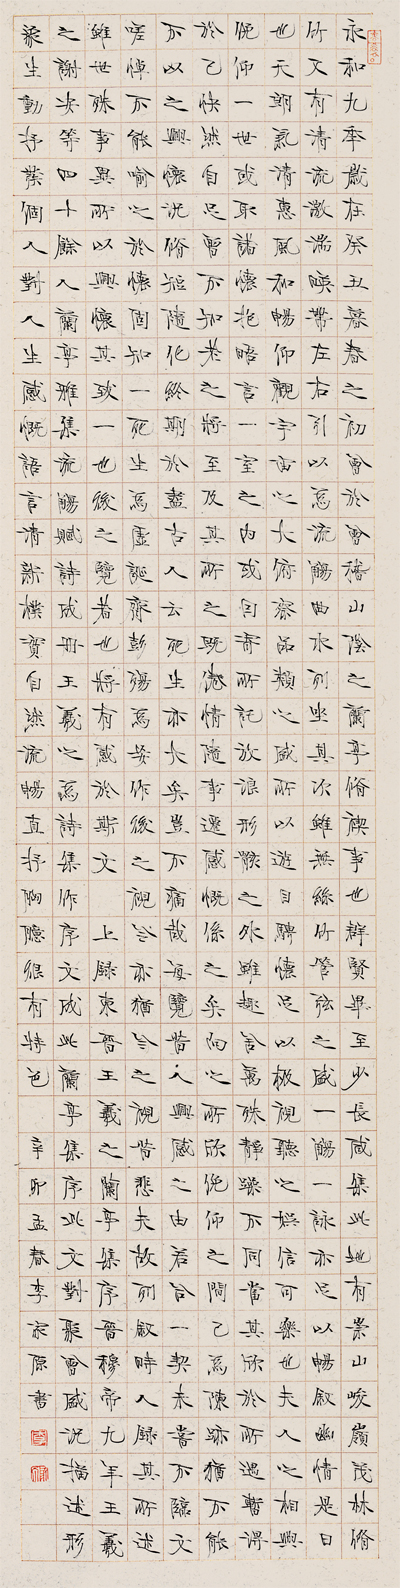 永和九年歲在癸丑暮春之初會於會稽山陰之蘭亭脩禊事也群賢畢至少長咸集此地有崇山峻嶺茂林脩
竹又有清流激湍暎帶左右引以為流觴曲水列坐其次雖無絲竹管弦之盛一觴一詠亦足以暢敘幽情是日
也天朗氣清惠風和暢仰觀宇宙之大俯察品類之盛所以遊目騁懷足以極視聽之娛信可樂也夫人之相與
俛仰一世或取諸懷抱晤言一室之內或因寄所託放浪形骸之外雖趣舍萬殊靜躁不同當其欣於所遇暫得
於己快然自足曾不知老之將至及其所之既惓情隨事遷感慨係之矣向之所欣俛仰之間已為陳迹猶不能
不以之興懷況脩短隨化終期於盡古人云死生亦大矣豈不痛哉每覽昔人興感之由若合一契未嘗不臨文
嗟悼不能喻之於懷固知一死生為虛誕齊彭殤為妄作後之視今亦猶今之視昔悲夫故列敘時人錄其所述
雖世殊事異所以興懷其致一也後之覽者也將有感於斯文 上錄東晉王羲之蘭亭集序晉穆帝九年王羲
之謝安等四十餘人蘭亭雅集流觴賦詩成冊王羲之為詩集作序文成此蘭亭集序此文對聚會盛況描述形
象生動抒發個人對人生感慨語言清新樸實自然流暢直抒胸臆很有特色 辛卯孟春李家原書